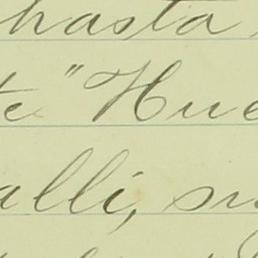 hasta
te "Hue
alli, su